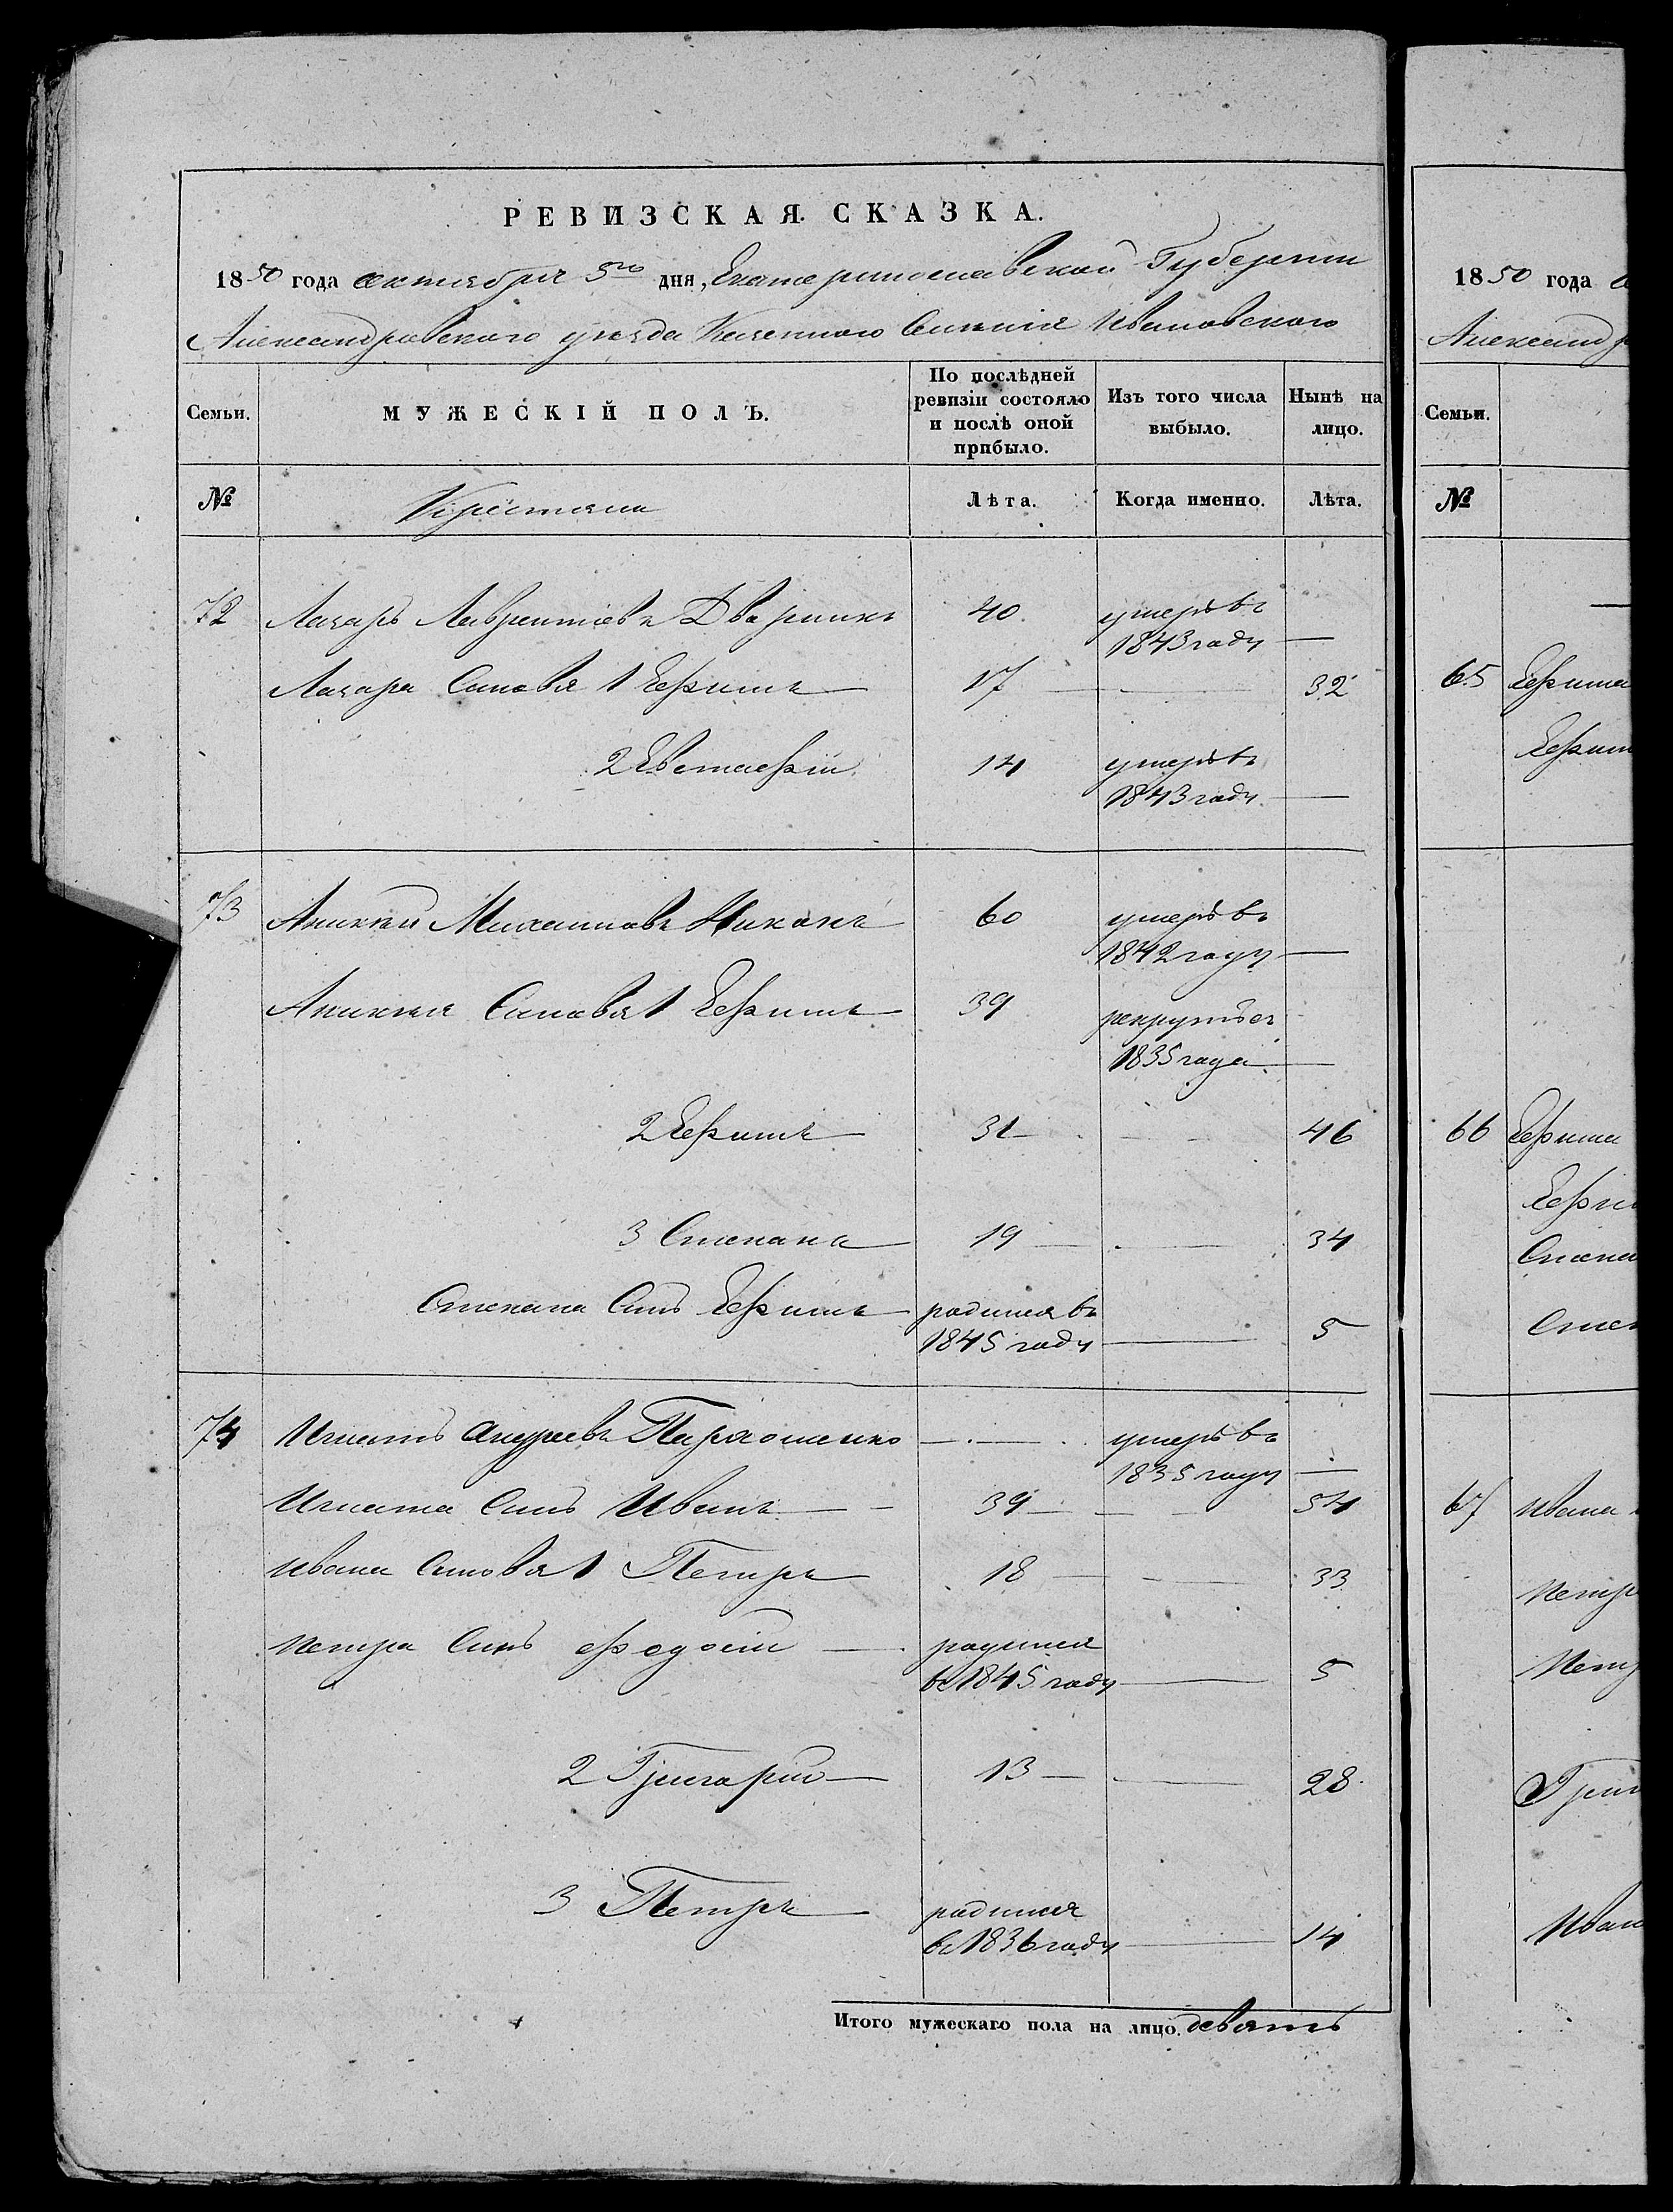 РЕВИЗСКАЯ СКАЗКА.
1850 года октября 5го дня, Екатеринославской Губернии
Александровского уезда Казенного Селения Ивановского
Семьи.
МУЖЕСКІЙ ПОЛЪ.
По послѣдней ревизіи состояло и послѣ оной прибыло.
Изъ того числа выбыло.
Нынѣ на лицо.
№
Лѣта.
Когда именно.
Лѣта.
72 Лазарь Лаврентіевъ Дворникъ 40. умеръ въ
1843 году —
Лазаря Сыновья 1 Ефимъ — 17 — 32
2 Евстафій 14 умеръ въ
1843 году —
73 Аникий Михайловъ 60 умеръ въ
1842 году —
Аникия Сыновья 1 Ефимъ — 39 рекрутъ съ
1835 года —
2 Ефимъ — 31 — 46
3 Степанъ — 19 — 34
Степана Сынъ Ефимъ — родился въ
1845 году — 5
74 Игнатъ Андреевъ Пархоменко — умеръ въ
1835 году —
Игната Сынъ Иванъ — 39 — 54
Ивана Сыновья 1 Петръ — 18 — 33
Петра Сынъ Федосій — родился
въ 1845 году — 5
2 Григорій — 13 — 28
3 Петръ — родился
въ 1836 году — 14
Итого мужескаго пола на лицо. девять
1850 года
Александр
Семьи.
№
65 Ефима
Ефим
66 Ефима
Ефи
Степа
Степ
67 Ивана
Петр
Петр
Григ
Иван